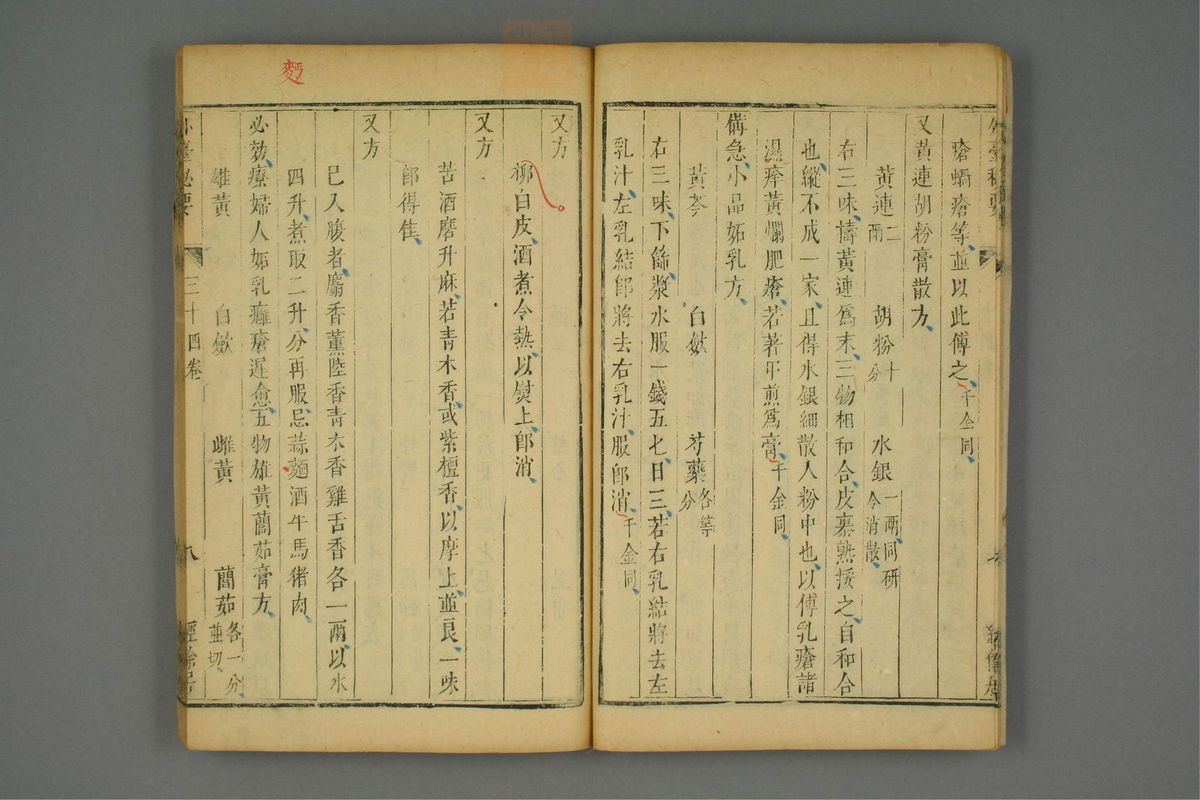 外臺秘要
瘡蝸瘡等並以此傅之千金同
又黃連胡粉膏散方
黃連二兩 胡粉十分 水銀一兩同研令消散
右三味擣黃連爲末三物相和合皮裹熟挼之自和合
也縱不成一家且得水銀細散入粉中也以傅乳瘡諸
濕痒黃爛肥瘡若著甲煎爲膏千金同
備急小品妬乳方
黃芩 白斂 芍藥各等分
右三味下篩漿水服一錢五七日三若右乳結將去左
乳汁左乳結卽將去右乳汁服卽消千金同
又方
柳白皮酒煮令熱以熨上卽消
又方
苦酒磨升麻若青木香或紫檀香以摩上並良一味
卽得佳
又方
已入腹者麝香薰陸香青木香雞舌香各一兩以水
四升煮取二升分再服忌蒜麵酒牛馬猪肉
必効療婦人妬乳癰瘡遲愈五物雄黃䕡茹膏方
雄黃 白斂 雌黃 䕡茹各一分並切
外臺秘要 三十四卷 八 經餘居
麫